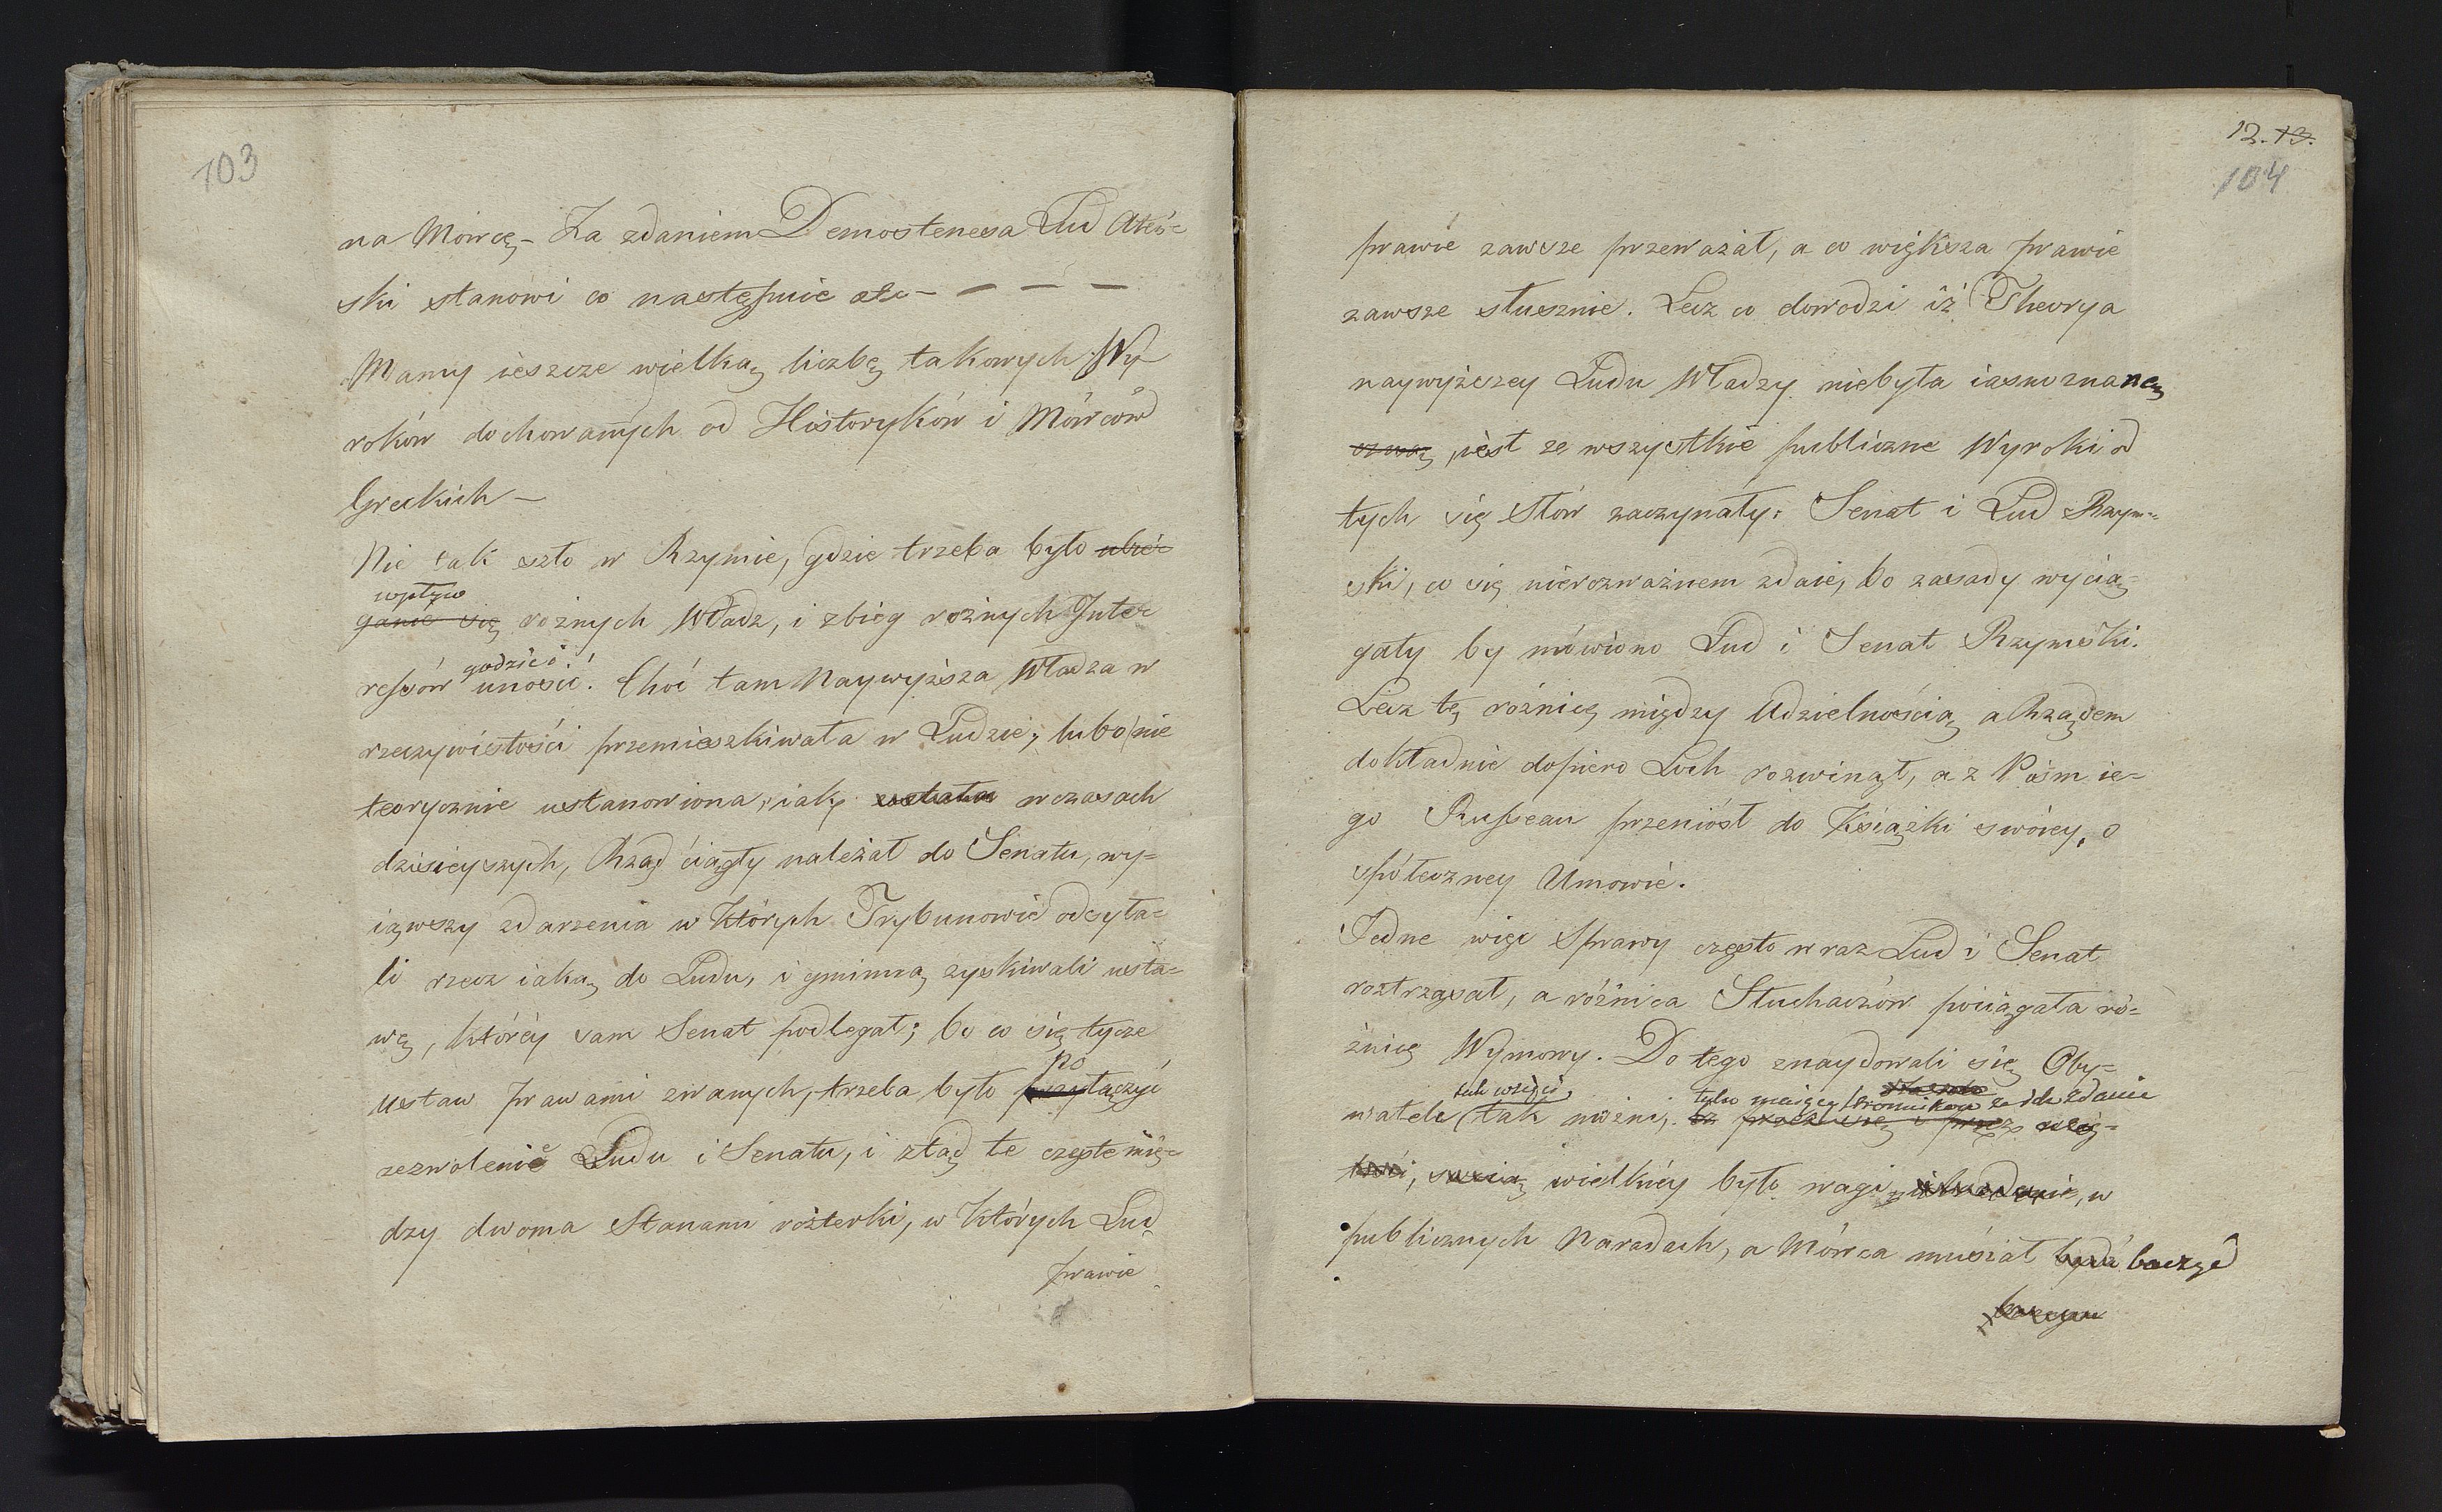 103
na Mówcę – Za zdaniem Demostenesa Lud Ateń-
ski stanowi co następuie etc – – – –
Mamy ieszcze wielką liczbę takowych Wy-
roków dochowanych od Historyków i Mówców
Greckich –
Nie tak szło w Rzymie, gdzie trzeba było
wpływ
ganie się rożnych Władz, i zbieg rożnych Inte-
godzić i
ressów unosić. Choć tam Naywyższa Władza w
rzeczywistości przemieszkiwała w Ludzie, lubo nie
teorycznie ustanowiona, iak w czasach
dzisieyszych, Rząd ciągły należał do Senatu, wy-
iąwszy zdarzenia w których Trybunowie odsyła-
li rzecz iaką do Ludu, i gminną zyskiwali usta-
wę, któréy sam Senat podlegał; bo co się tycze
po
Ustaw prawami zwanych, trzeba było przyłączyć
zezwolenie Ludu i Senatu, i ztąd te częste mię-
dzy dwoma Stanami rozterki, w których Lud
prawie
12. 13.
104
prawie zawsze przeważał, a co większa prawie
zawsze słusznie. Lecz co dowodzi iż Theorya
naywyższey Ludu Władzy niebyła iasno znaną
iest że wszystkie publiczne Wyroki od
tych się słów zaczynały: Senat i Lud Rzym-
ski, co się nierozważnem zdaie, bo zasady wycią-
gały by mówiono Lud i Senat Rzymski.
Lecz tę różnicę między Udzielnością a Rządem
dokładnie dopiero Lock rozwinął, a z Pism ie-
go Russeau przeniósł do Książki swóiey, o
społeczney Umowie.
Jedne więc Sprawy często wraz Lud i Senat
roztrząsał, a różnica Słuchaczów pociągała ró-
żnicę Wymowy. Do tego znaydowali się Oby-
watele tak możni,
tylu maiący stronników że ich zdanie
wielkiéy było wagi, w
publicznych Naradach, a Mówca musiał być baczyć